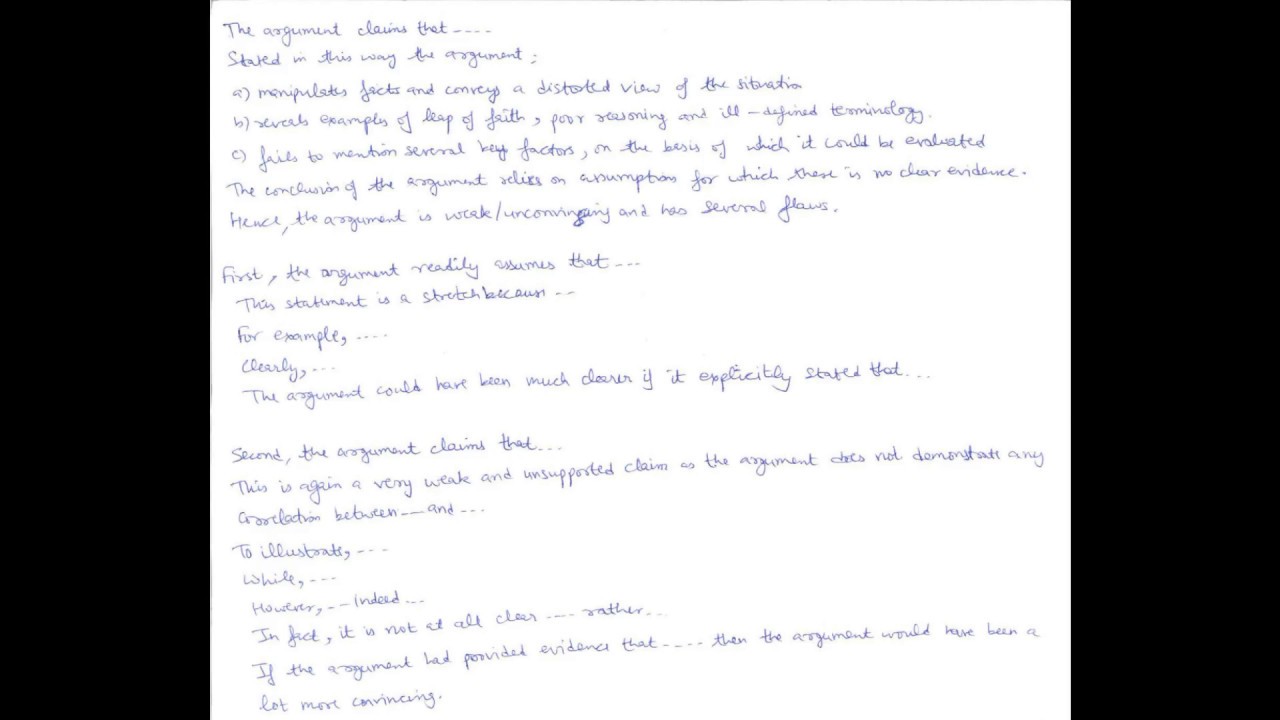 The argument claims that ----
Stated in this way the argument;
a) manipulates facts and conveys a distorted view of the situation
b) reveals examples of leap of faith, poor reasoning and ill-defined terminology.
c) fails to mention several key factors, on the basis of which it could be evaluated
The conclusion of the argument relies on assumptions for which there is no clear evidence.
Hence, the argument is weak/unconvincing and has several flaws.
First, the argument readily assumes that ---
This statement is a stretch because --
For example, ----
Clearly, ...
The argument could have been much clearer if it explicitly stated that...
Second, the argument claims that...
This is again a very weak and unsupported claim as the argument does not demonstrate any
correlation between -- and ---
To illustrate, ---
While, ---
However, -- Indeed ---
In fact, it is not at all clear ---- rather...
If the argument had provided evidence that ---- then the argument would have been a
lot more convincing.